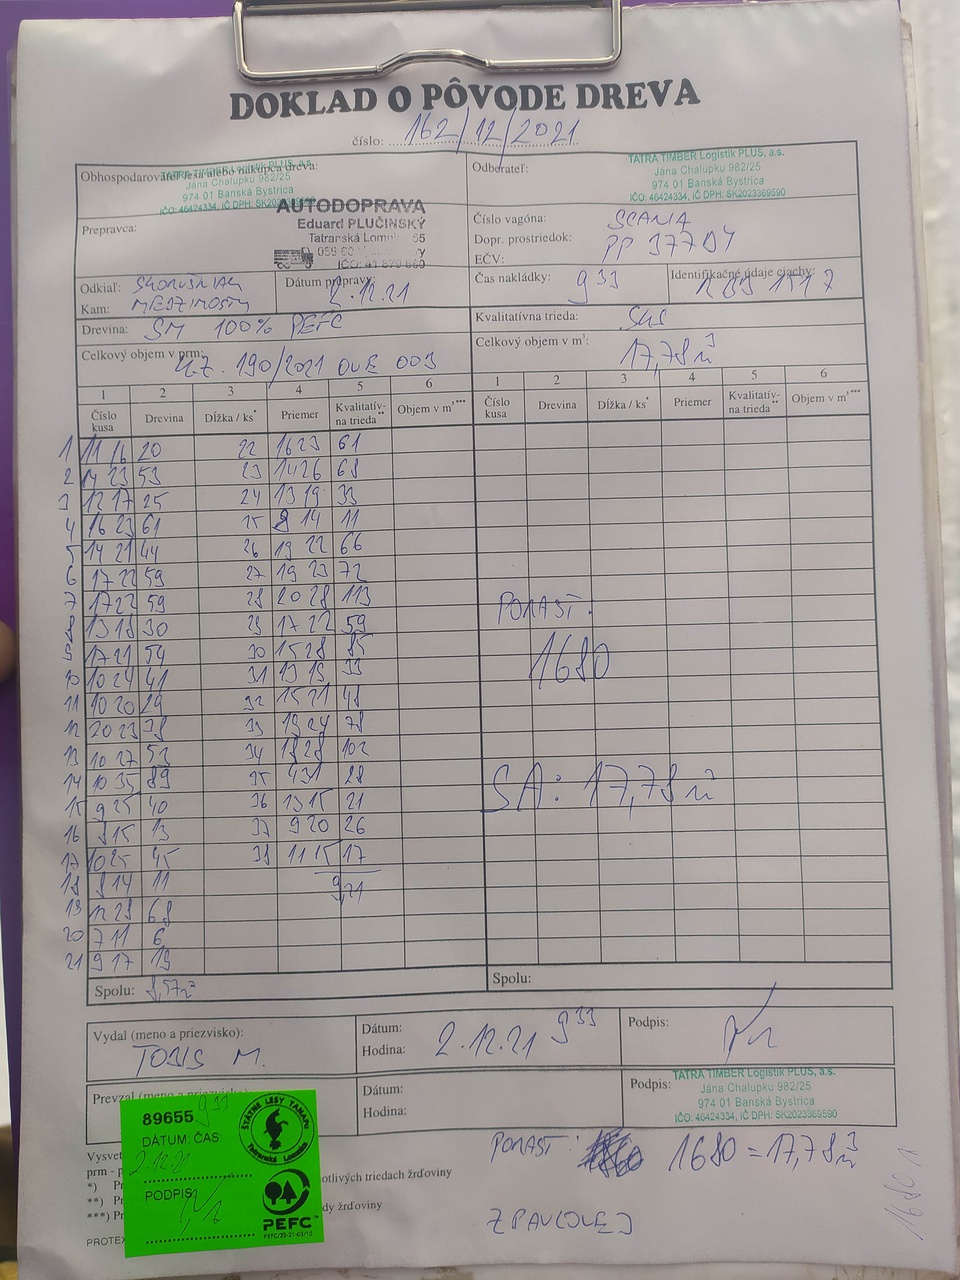 DOKLAD O PÔVODE DREVA
číslo: 162/12/2021
Obhospodarovateľ lesa alebo nákupca dreva:
TATRA TIMBER Logistik PLUS, a.s.
Jána Chalupku 982/25
974 01 Banská Bystrica
IČO: 46424334, IČ DPH: SK2023369590
Odberateľ:
TATRA TIMBER Logistik PLUS, a.s.
Jána Chalupku 982/25
974 01 Banská Bystrica
IČO: 46424334, IČ DPH: SK2023369590
Prepravca:
AUTODOPRAVA
Eduard PLUČINSKÝ
Tatranská
Číslo vagóna: SCANIA
Dopr. prostriedok: PP 377DY
EČV:
Odkiaľ:
Kam: MEDZIMOSTY
Dátum prepravy: 2.12.21
Čas nakládky: 9 33
Identifikačné údaje ciachy:
Drevina: SM 100% PEFC
Kvalitatívna trieda:
Celkový objem v prm:
190/2021 003
Celkový objem v m³: 17,78 m³
1 2 3 4 5 6 1 2 3 4 5 6
Číslo kusa Drevina Dĺžka / ks* Priemer Kvalitatív- na trieda** Objem v m³*** Číslo kusa Drevina Dĺžka / ks* Priemer Kvalitatív- na trieda** Objem v m³***
1 11 16 20 22 16 23 61
2 14 23 53 23 14 26 68
3 12 17 25 24 13 19 33
4 16 23 61 25 8 14 11
5 14 21 44 26 19 22 66
6 17 22 59 27 19 23 72
7 17 22 59 28 20 28 113
8 13 18 30 29 17 22 59
9 17 21 54 30 15 28 85
10 10 24 41 31 13 19 33
11 10 20 29 32 15 21 48
12 20 23 33 19 24 78
13 10 27 53 34 18 28 102
14 10 35 89 35 4 31 28
15 9 25 40 36 13 15 21
16 8 15 13 37 9 20 26
17 10 25 45 38 11 15 17
18 8 14 11
9,21
19 12 28 68
20 7 11 6
21 9 17 19
PORAST:
1680
SA: 17,78 m³
Spolu: 8,57 m³
Spolu:
Vydal (meno a priezvisko):
M.
Dátum:
Hodina:
2.12.21 9 33
Podpis:
Prevzal (meno a priezvisko):
Dátum:
Hodina:
Podpis:
TATRA TIMBER Logistik PLUS, a.s.
Jána Chalupku 982/25
974 01 Banská Bystrica
IČO: 46424334, IČ DPH: SK2023369590
89655
9 33
DÁTUM, ČAS:
2.12.21
PODPIS:
ŠTÁTNE LESY TANAPU
Tatranská Lomnica
PEFC™
PEFC/23-21-02/15
PORAST: 1680 = 17,78 m³
prm -
*)
**)
***)
otlivých triedach žrďoviny
dy žrďoviny